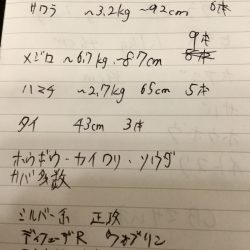 サワラ ~3.2kg ~92cm 6本
9本
メジロ ~6.7kg ~87cm 8本
ハマチ ~2.7kg 65cm 5本
タイ 43cm 3本
ホウボウ・カイワリ・ソウダ
サバ多数
ミルバー系 正攻
ディフューザR ウォブリン